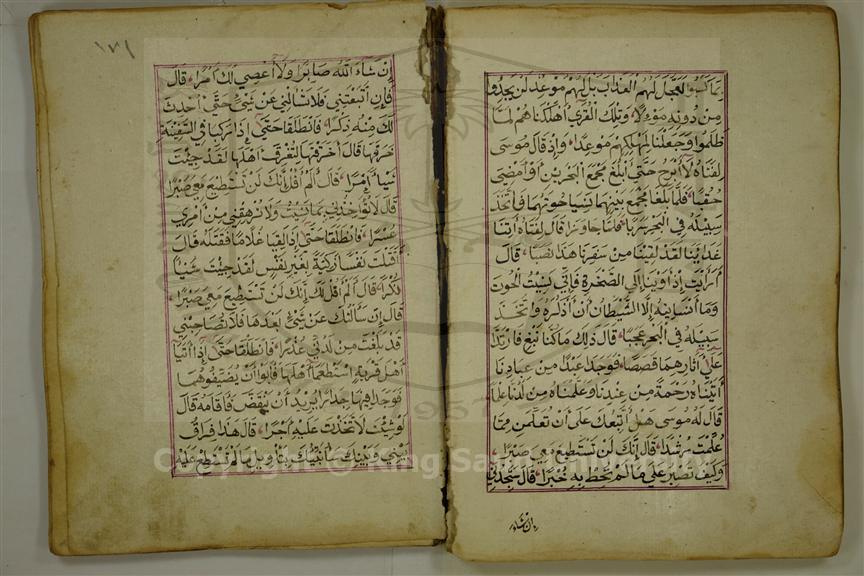 بما كسبوا لعجل لهم العذاب بل لهم موعد لن يجدوا
من دونه موئلا وتلك القرى أهلكناهم لما
ظلموا وجعلنا لمهلكهم موعدا وإذ قال موسى
لفتاه لا أبرح حتى أبلغ مجمع البحرين أو أمضي
حقبا فلما بلغا مجمع بينهما نسيا حوتهما فاتخذ
سبيله في البحر سربا فلما جاوزا قال لفتاه آتنا
غداءنا لقد لقينا من سفرنا هذا نصبا قال
أرأيت إذ أوينا إلى الصخرة فإني نسيت الحوت
وما أنسانيه إلا الشيطان أن أذكره واتخذ
سبيله في البحر عجبا قال ذلك ما كنا نبغ فارتدا
على آثارهما قصصا فوجدا عبدا من عبادنا
آتيناه رحمة من عندنا وعلمناه من لدنا علما
قال له موسى هل أتبعك على أن تعلمن مما
علمت رشدا قال إنك لن تستطيع معي صبرا
وكيف تصبر على ما لم تحط به خبرا قال ستجدني
إن شاء
١٧١
إن شاء الله صابرا ولا أعصي لك أمرا قال
فإن اتبعتني فلا تسألني عن شيء حتى أحدث
لك منه ذكرا فانطلقا حتى إذا ركبا في السفينة
خرقها قال أخرقتها لتغرق أهلها لقد جئت
شيئا إمرا قال ألم أقل إنك لن تستطيع معي صبرا
قال لا تؤاخذني بما نسيت ولا ترهقني من أمري
عسرا فانطلقا حتى إذا لقيا غلاما فقتله قال
أقتلت نفسا زكية بغير نفس لقد جئت شيئا
نكرا قال ألم أقل لك إنك لن تستطيع معي صبرا
قال إن سألتك عن شيء بعدها فلا تصاحبني
قد بلغت من لدني عذرا فانطلقا حتى إذا أتيا
أهل قرية استطعما أهلها فأبوا أن يضيفوهما
فوجدا فيها جدارا يريد أن ينقض فأقامه قال
لو شئت لاتخذت عليه أجرا قال هذا فراق
بيني وبينك سأنبئك بتأويل ما لم تستطع عليه